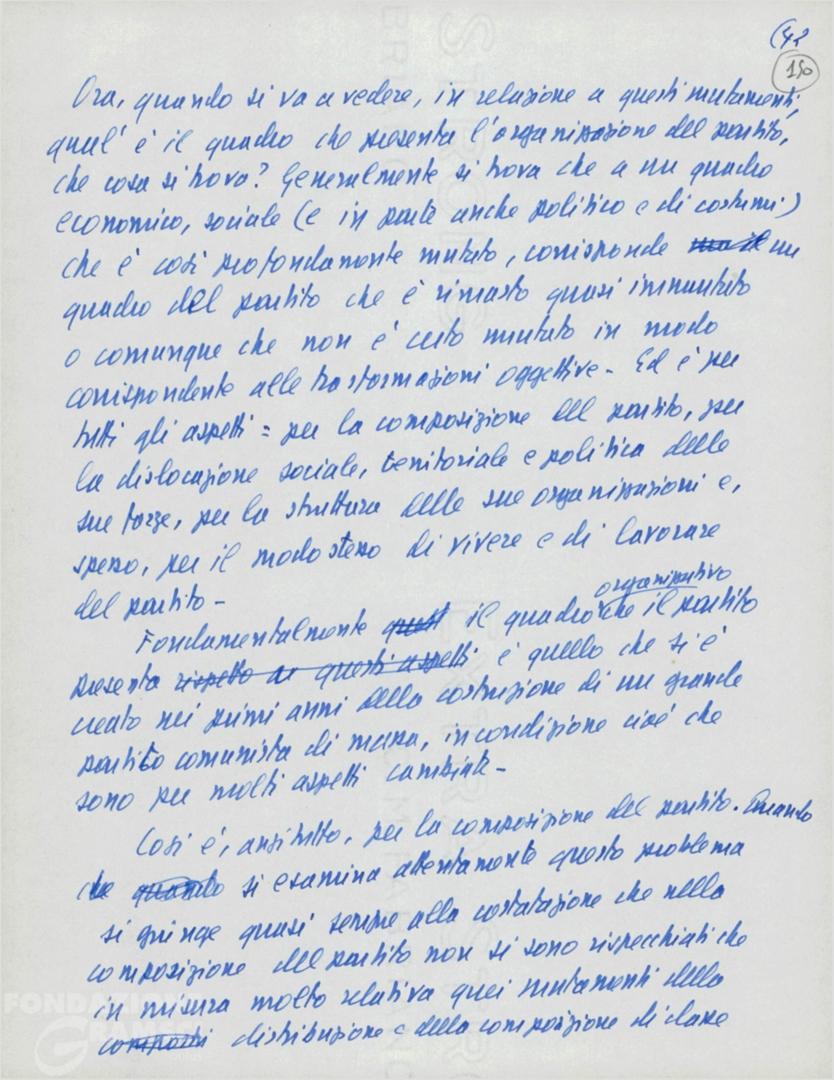 (42
150
Ora, quando si va a vedere, in relazione a questi mutamenti,
qual' è il quadro che presenta l'organizzazione del partito,
che cosa si trova? Generalmente si trova che a un quadro
economico, sociale (e in parte anche politico e di costumi)
che è così profondamente mutato, corrisponde un
quadro del partito che è rimasto quasi immutato
o comunque che non è certo mutato in modo
corrispondente alle trasformazioni oggettive - Ed è per
tutti gli aspetti: per la composizione del partito, per
la dislocazione sociale, territoriale e politica delle
sue forze, per la struttura delle sue organizzazioni e,
spesso, per il modo stesso di vivere e di lavorare
del partito -
organizzativo
Fondamentalmente quest il quadro che il partito
presenta rispetto a questi aspetti è quello che si è
creato nei primi anni della costruzione di un grande
partito comunista di massa, in condizione cioè che
sono per molti aspetti cambiate -
Così è, anzitutto, per la composizione del partito. Quando
che quando si esamina attentamente questo problema
si giunge quasi sempre alla costatazione che nella
composizione del partito non si sono rispecchiati che
in misura molto relativa quei mutamenti della
composi distribuzione e della composizione di classe
FONDAZIONE
GRAMSCI